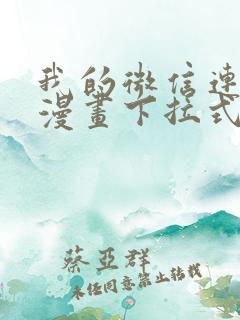 我的微信連
漫畫下拉式
蔡亞群
未经同意禁止转载